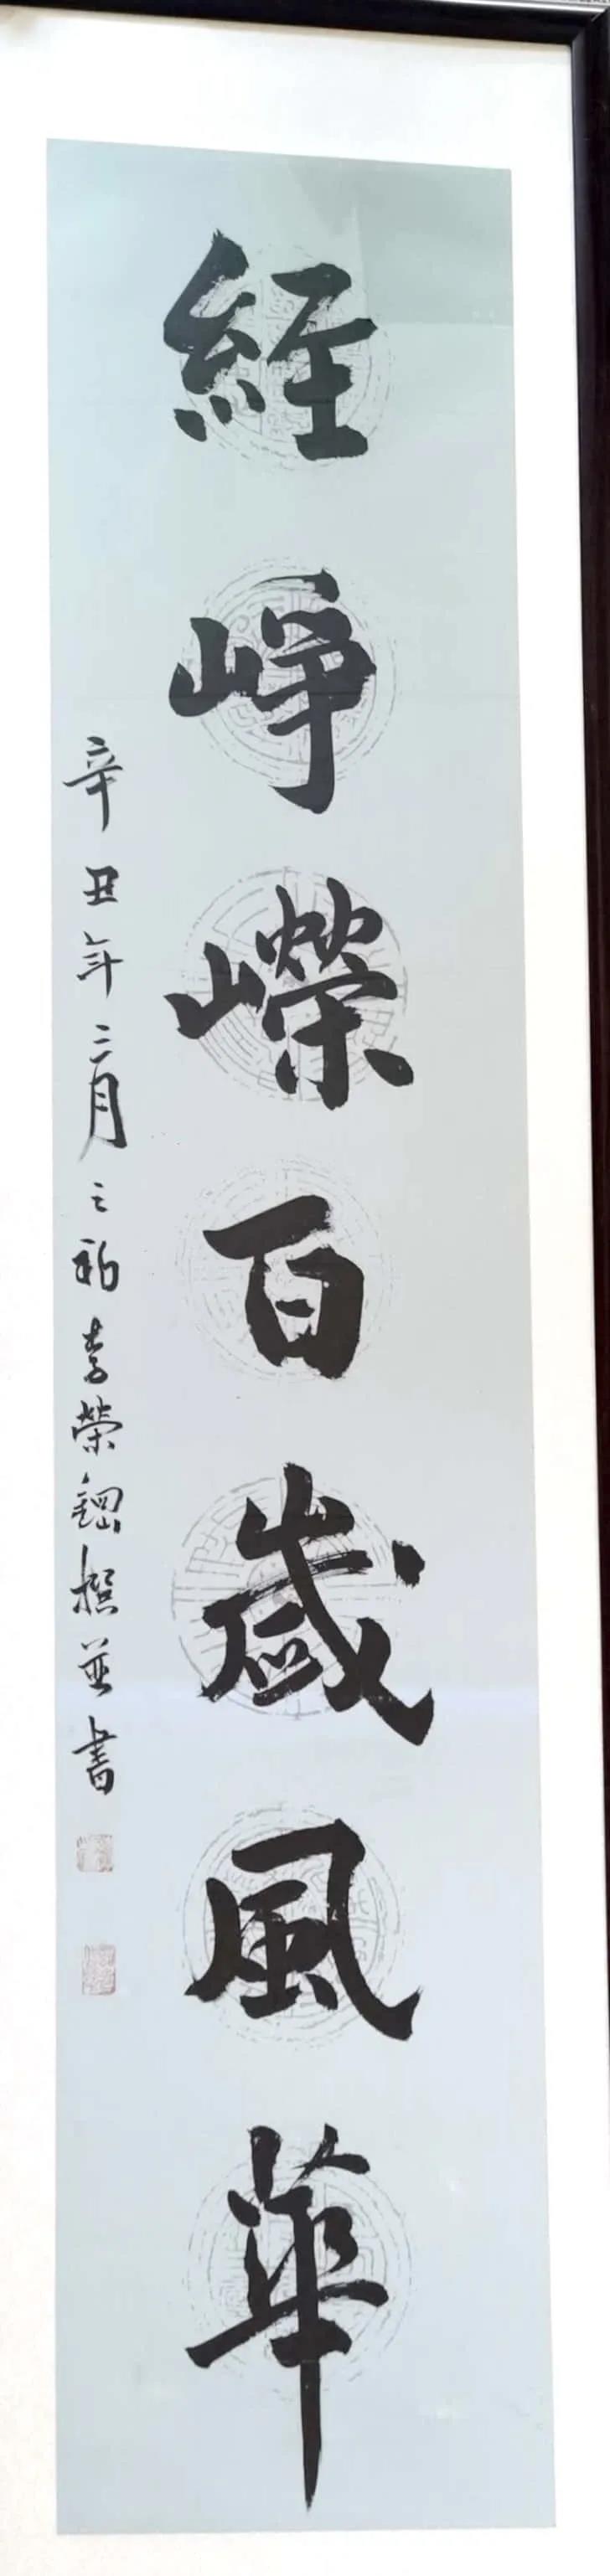 經崢嶸百歲風華
辛丑年二月之初李榮鍶撰並書